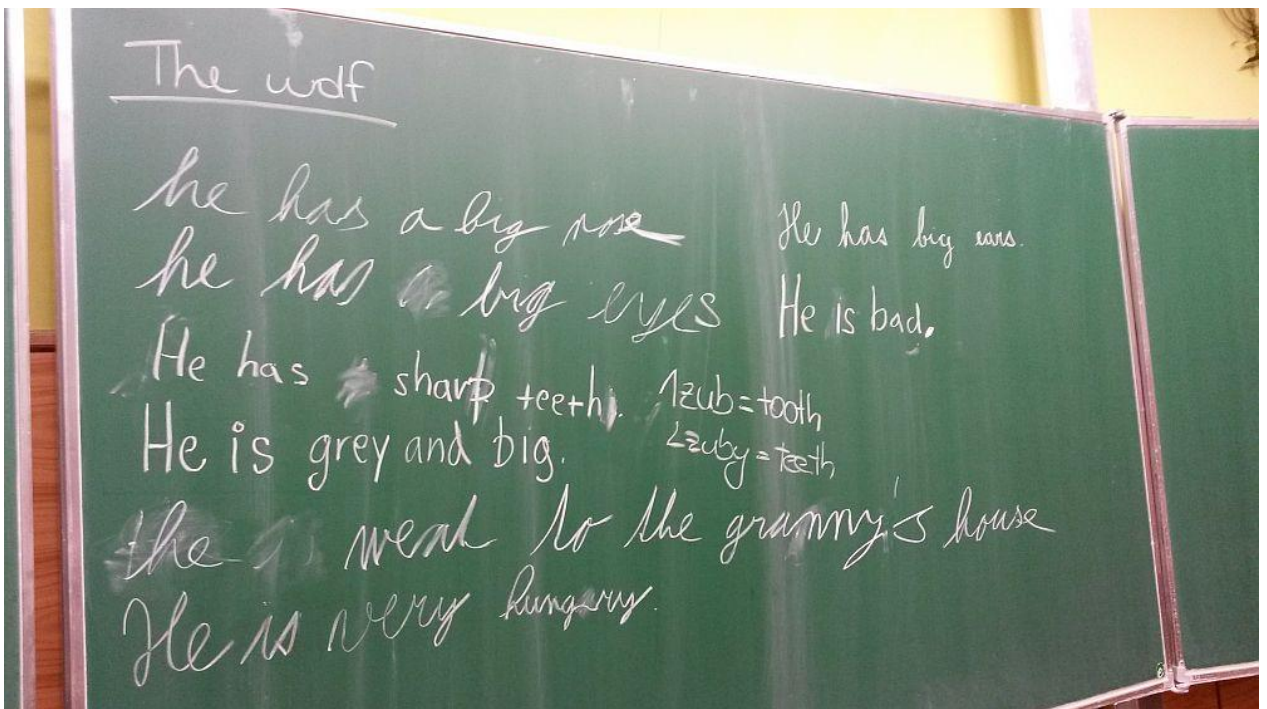 The wolf
he has a big nose
he has big eyes
He has sharp teeth.
He is grey and big.
he went to the granny's house
He is very hungery.
He has big ears.
He is bad.
1zub=tooth
2zuby=teeth